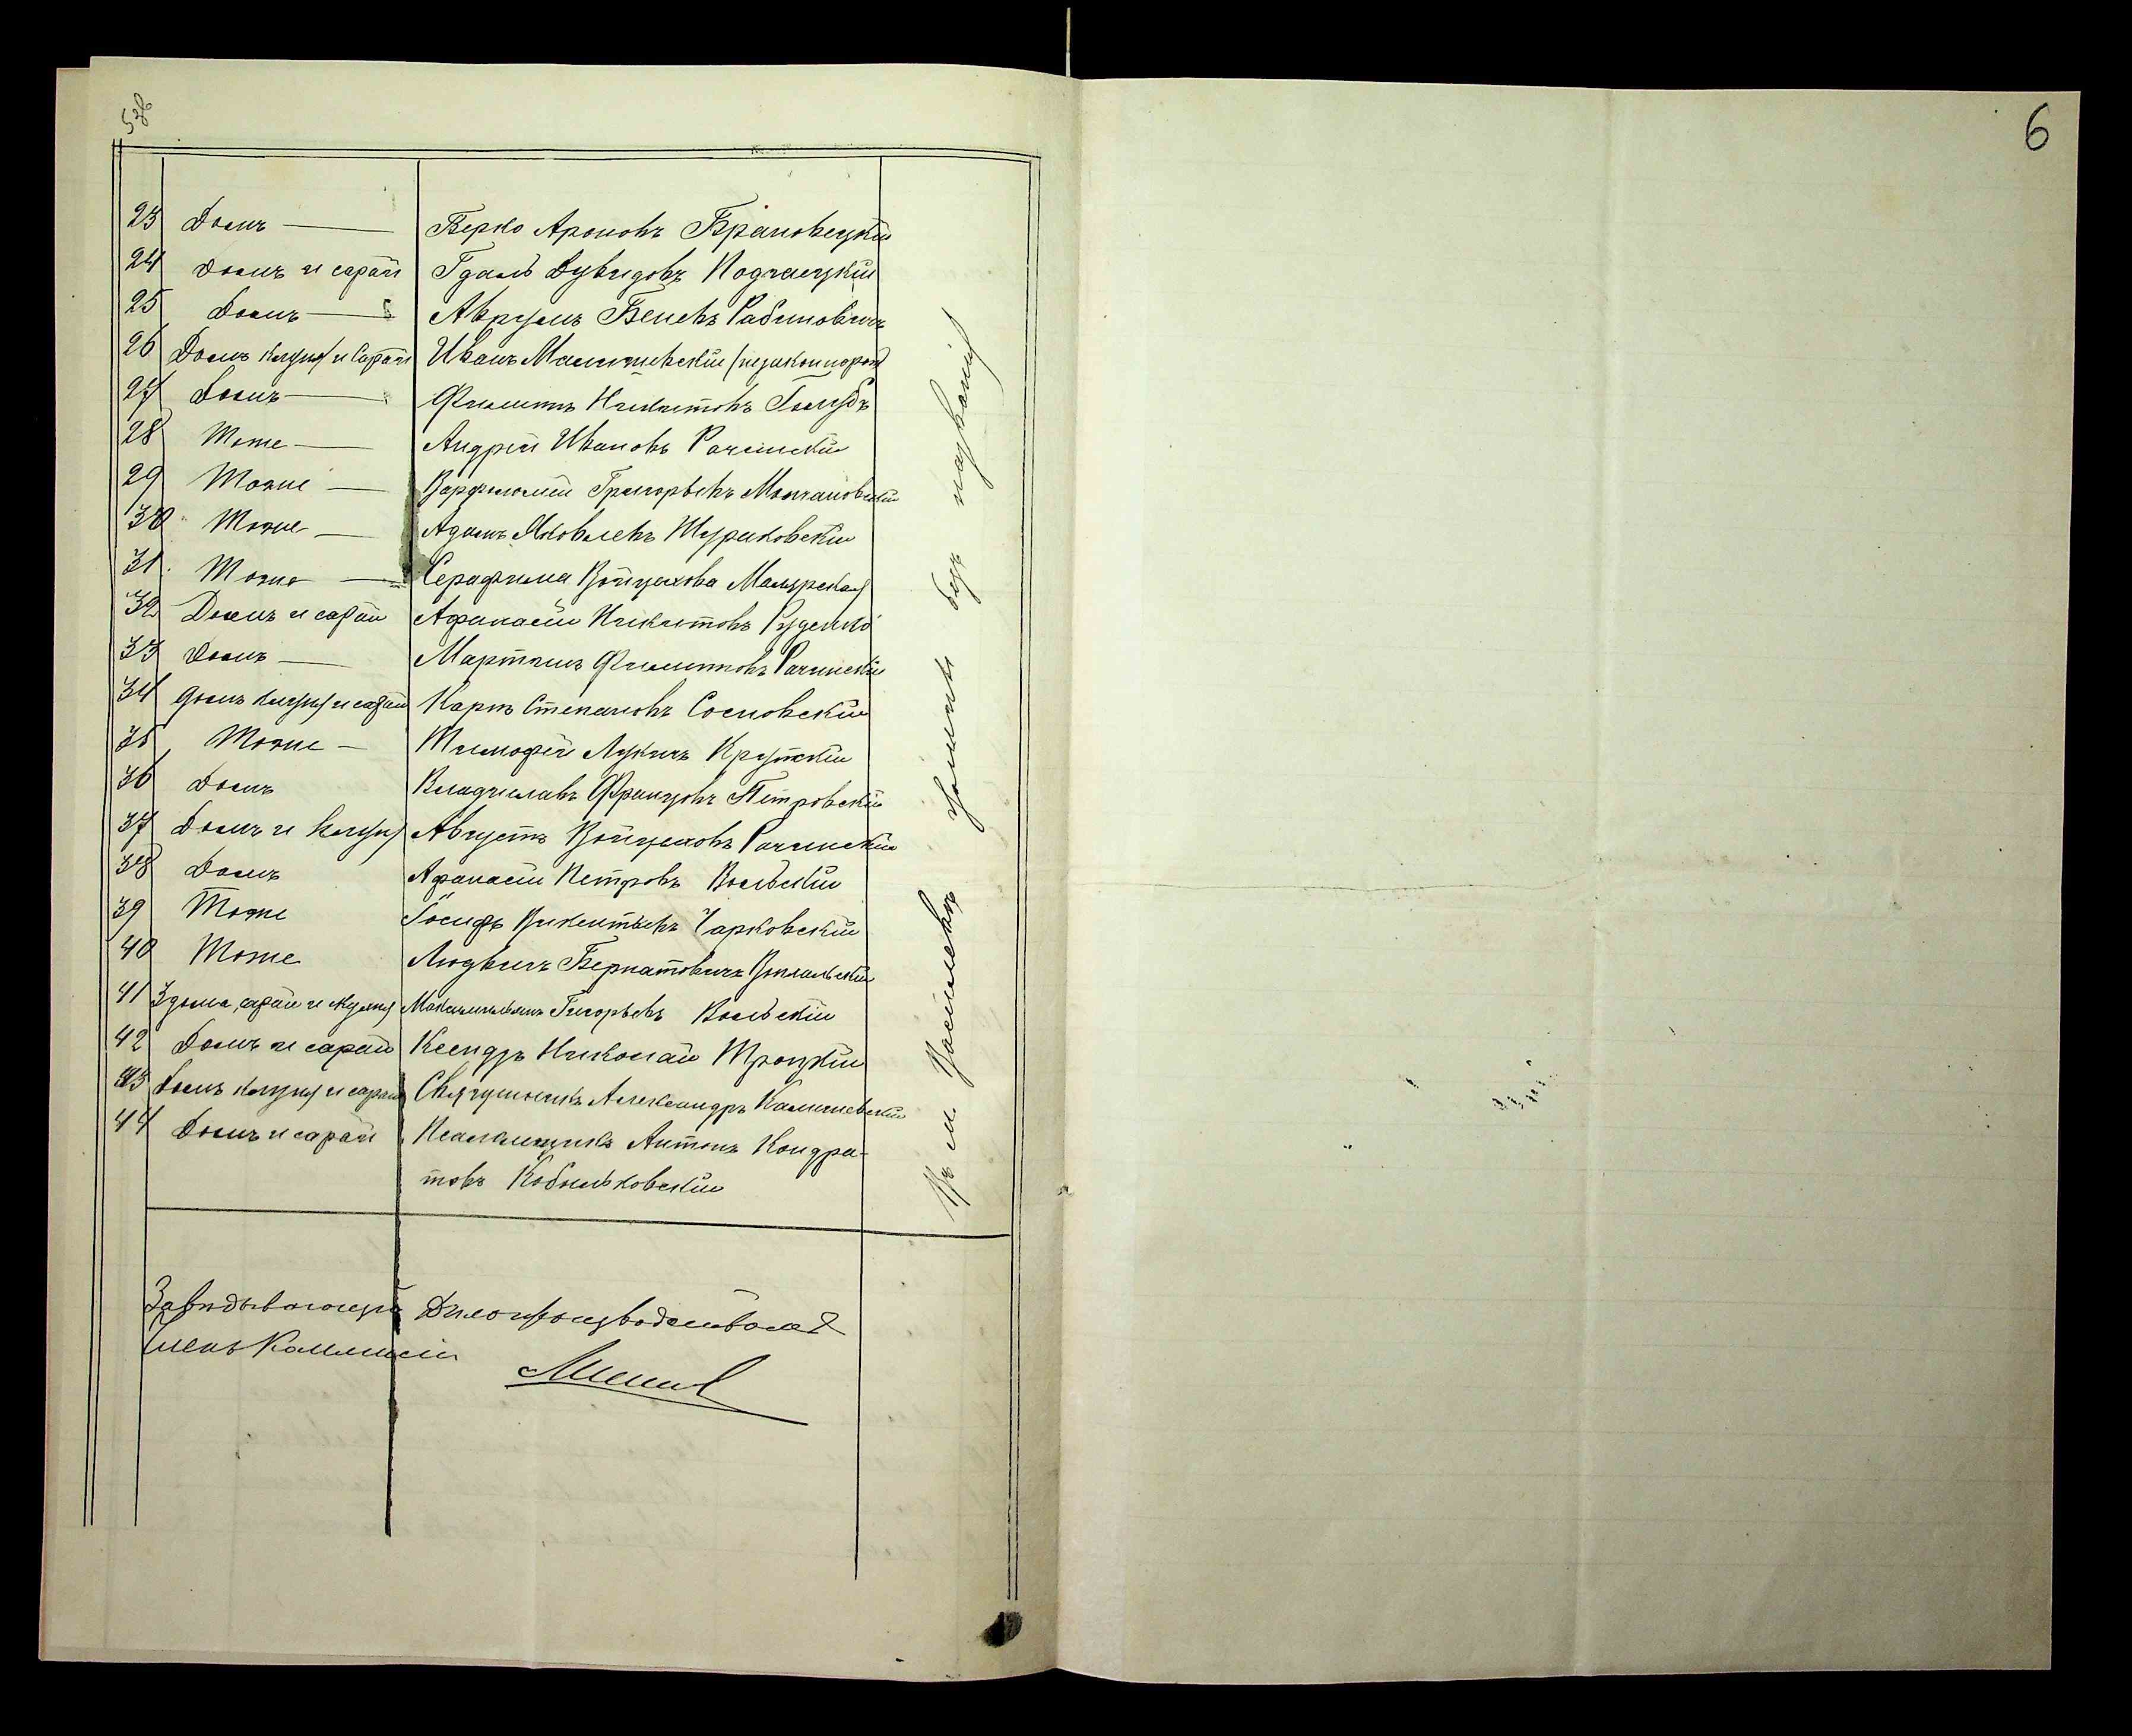 6
23 Домъ — Берко Ароновъ Брановецкій
24 Домъ и сарай Гдаль Дувидовъ Подгаецкій
25 Домъ — Аврумъ Беневъ Рабиновичъ
26 Домъ клуня и сарай Иванъ Малишевскій (незаконнорож)
27 Домъ — Филиппъ Никитовъ Голубъ
28 Тоже — Андрей Ивановъ Рачинскій
29 Тоже — Варфоломей Григорьевъ Молчановскій
30 Тоже — Адамъ Яковлевъ Жураковскій
31 Тоже — Серафима Войцехова Малярская
32 Домъ и сарай Афанасій Никитовъ Руденко
33 Домъ — Мартинъ Филипповъ Рачинскій
34 Домъ клуня и сарай Карпъ Степановъ Сосновскій
35 Тоже — Тимофей Лукичъ Крупскій
36 Домъ Владиславъ Францовъ Петровскій
37 Домъ и клуня Августъ Войцеховъ Рачинскій
38 Домъ Афанасій Петровъ Вольскій
39 Тоже Іосифъ Викентьевъ Чарковскій
40 Тоже Людвигъ Бернатовичъ
41 3 дома, сарай и клуня Максимильянъ Григорьевъ Вольскій
42 Домъ и сарай Ксендзъ Николай Троцкій
43 Домъ клуня и сарай Священникъ Александръ Калишевскій
44 Домъ и сарай Псаломщикъ Антонъ Кондра-
товъ Кобыльковскій
Въ м Васильевкѣ улица безъ названія
Завѣдывающій Дѣлопроизводствомъ
Членъ Коммисіи